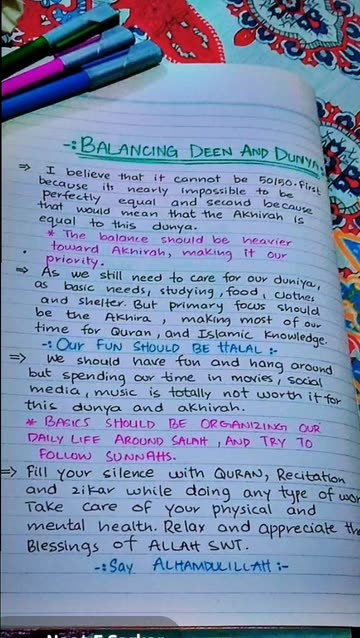 -: BALANCING DEEN AND DUNYA
⇒ I believe that it cannot be 50/50. First
because its nearly impossible to be
perfectly equal and second because
that would mean that the Akhirah is
equal to this dunya.
* The balance should be heavier
toward Akhirah, making it our
priority.
⇒ As we still need to care for our duniya,
as basic needs, studying, food, clothes
and shelter. But primary focus should
be the Akhira, making most of our
time for Quran, and Islamic knowledge.
-: OUR FUN SHOULD BE HALAL :-
⇒ We should have fun and hang around
but spending our time in movies, social
media, music is totally not worth it for
this dunya and akhirah.
* BASICS SHOULD BE ORGANIZING OUR
DAILY LIFE AROUND SALAH, AND TRY TO
FOLLOW SUNNAHS.
⇒ Fill your silence with QURAN, Recitation
and zikar while doing any type of
Take care of your physical and
mental health. Relax and appreciate
Blessings of ALLAH SWT.
-: Say ALHAMDULILLAH :-